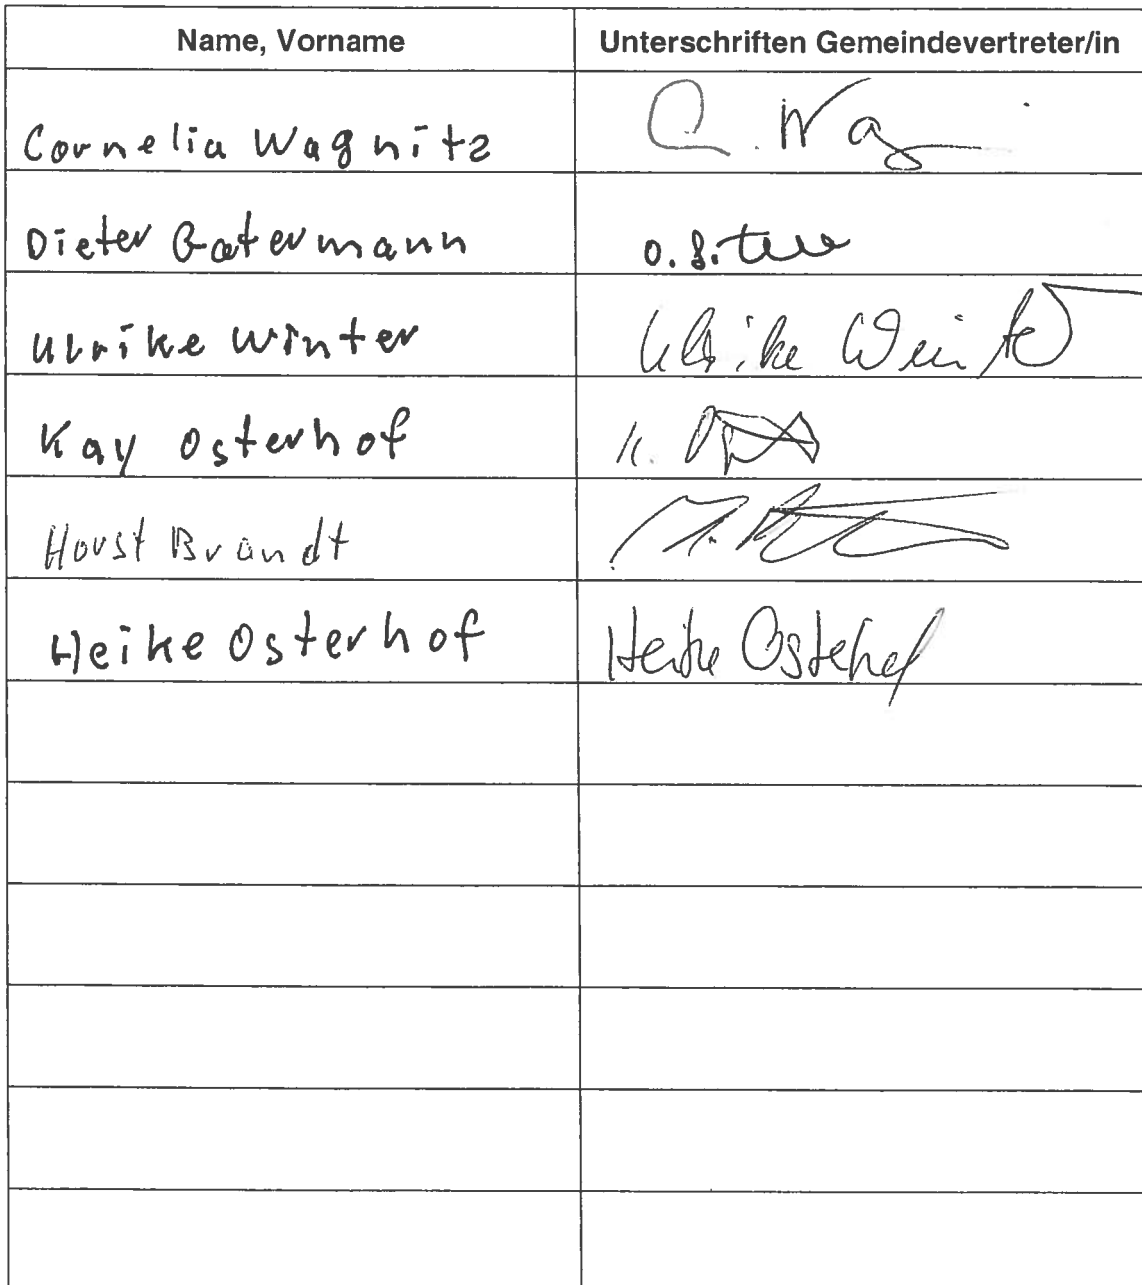 Name, Vorname Unterschriften Gemeindevertreter/in
Cornelia Wagnitz C. Wag
Dieter Gatermann
Ulrike Winter Ulrike Winter
Kay Osterhof K.
Horst Brandt
Heike Osterhof Heike Osterhof